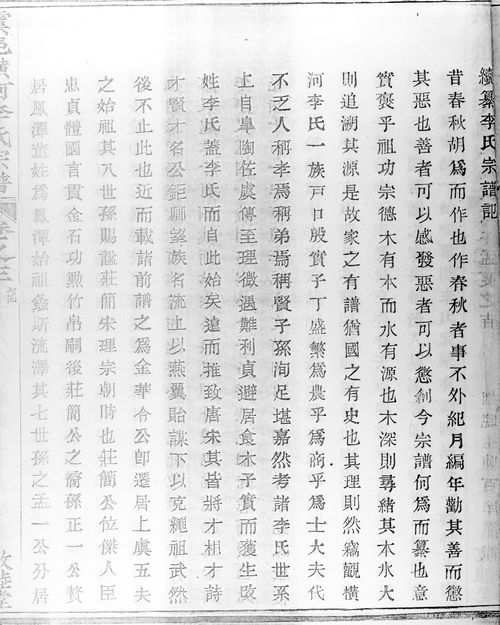 續纂李氏宗譜記
昔春秋胡為而作也作春秋者事不外紀月編年勸其善而懲
其惡也善者可以感發惡者可以懲創今宗譜何為而纂也意
實褒乎祖功宗德木有本而水有源也木深則尋緒其本水大
則追溯其源是故家之有譜猶國之有史也其理則然竊觀橫
河李氏一族戸口殷實子丁盛繁為農乎為商乎為士大夫代
不乏人稱孝焉稱弟焉稱賢子孫洵足堪嘉然考諸李氏世系
上自臯陶佐虞傳至理徵遇難利貞避居食木子實而獲生改
姓李氏蓋李氏而自此始矣遠而推致唐宋其皆將才相才詩
才賢才名公鉅卿望族名流上以燕翼貽謀下以克繩祖武然
後不止此也近而載諸前譜之為金華令公卽遷居上虞五夫
之始祖其八世孫賜諡莊簡宋理宗朝時也莊簡公位傑人臣
忠貞體國言貫金石功勳竹帛嗣後莊簡公之裔孫正一公贅
居鳳潭董姓為鳳潭始祖螽斯流澤其七世孫之孟一公分居
虞邑橫河李氏宗譜
卷之三
記
敦睦堂